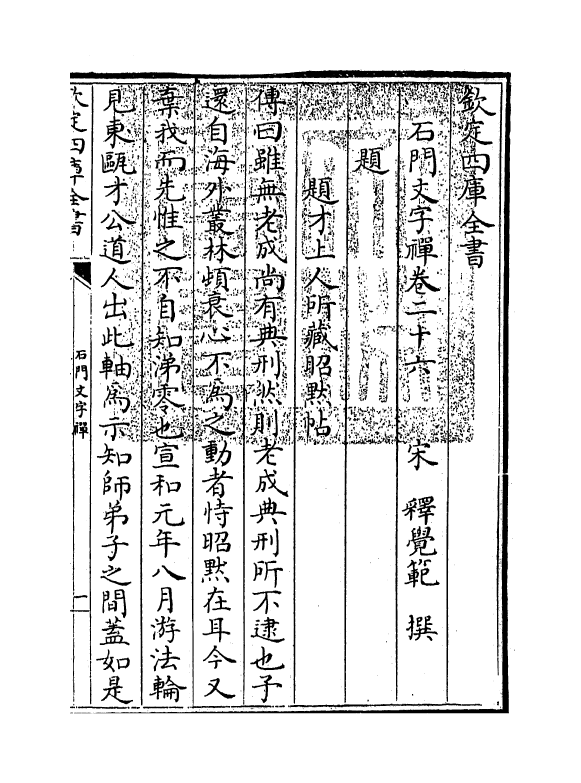 欽定四庫全書
石門文字禪卷二十六　宋　釋覺範　撰
題
題才上人所藏昭黙帖
傳曰雖無老成尚有典刑然則老成典刑所不逮也予
還自海外叢林頓衰心不爲之動者恃昭黙在耳今又
棄我而先惟之不自知涕零也宣和元年八月游法輪
見東甌才公道人出此軸爲示知師弟子之間蓋如是
欽定四庫全書
石門文字禪
一